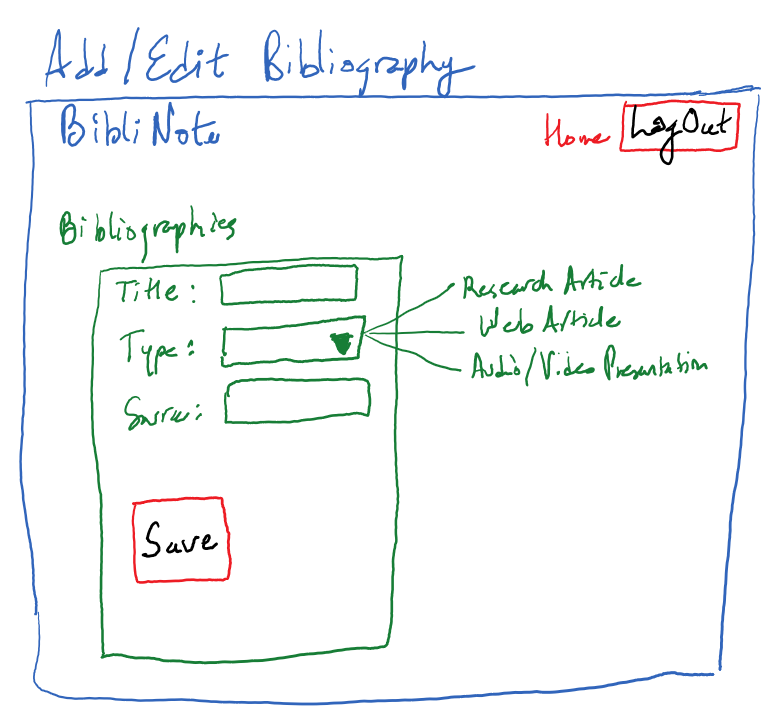 Add/Edit Bibliography
BibliNote
Home LogOut
Bibliographies
Title:
Type:
Source:
Research Article
Web Article
Audio/Video Presentation
Save